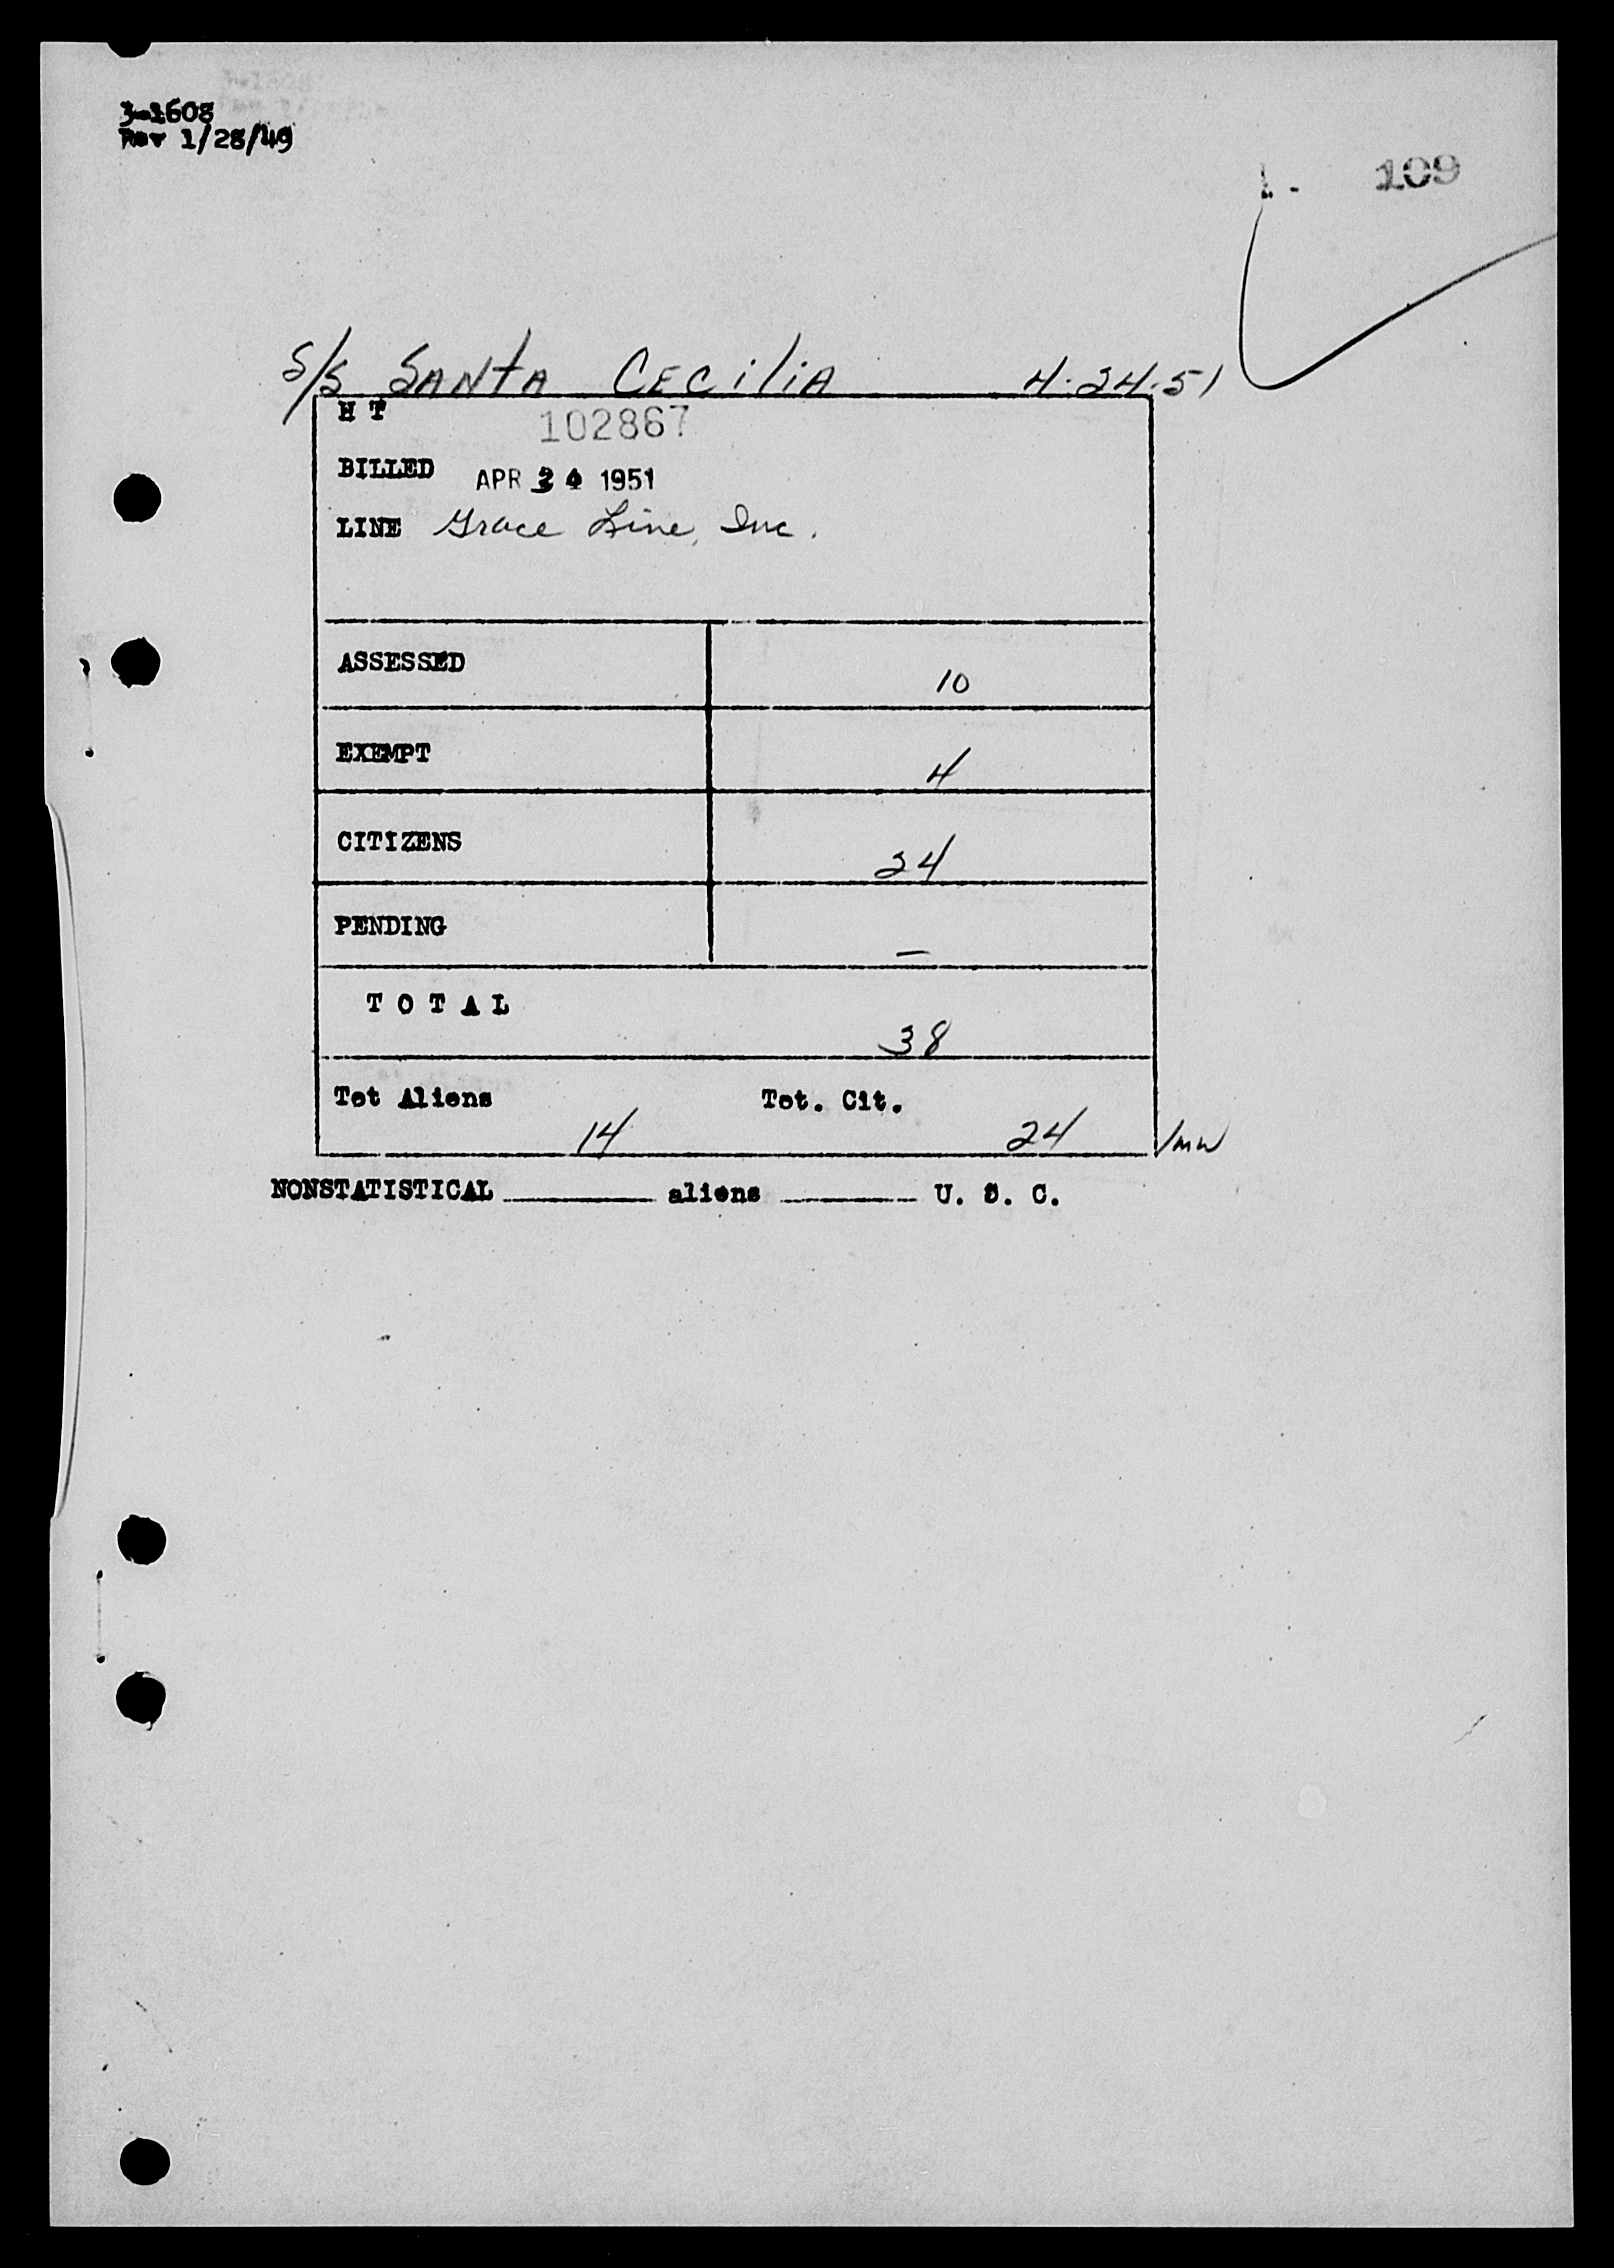 3-1608
Rev 1/28/49
109
S/S SANTA CECILIA 4-24-51
H T 102867
BILLED APR 24 1951
LINE Grace Line, Inc.
ASSESSED 10
EXEMPT 4
CITIZENS 24
PENDING —
TOTAL
38
Tot Aliens Tot. Cit.
14 24 /mw
NONSTATISTICAL ______ aliens ______ U. S. C.